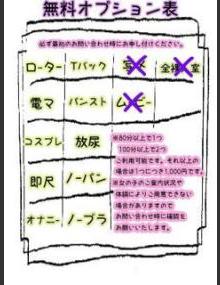 無料オプション表
必ず最初のお問い合わせ時にお申し付けください。
ローター Tバック
電マ パンスト ムービー
コスプレ 放尿
即尺 ノーパン
オナニー ノーブラ
※80分以上で1つ
100分以上で2つ
ご利用可能です。それ以上の
場合は1つにつき1,000円です。
※女の子のご案内状況や
体調によりご用意できない
場合がありますので
お問い合わせ時に確認を
お願いいたします。